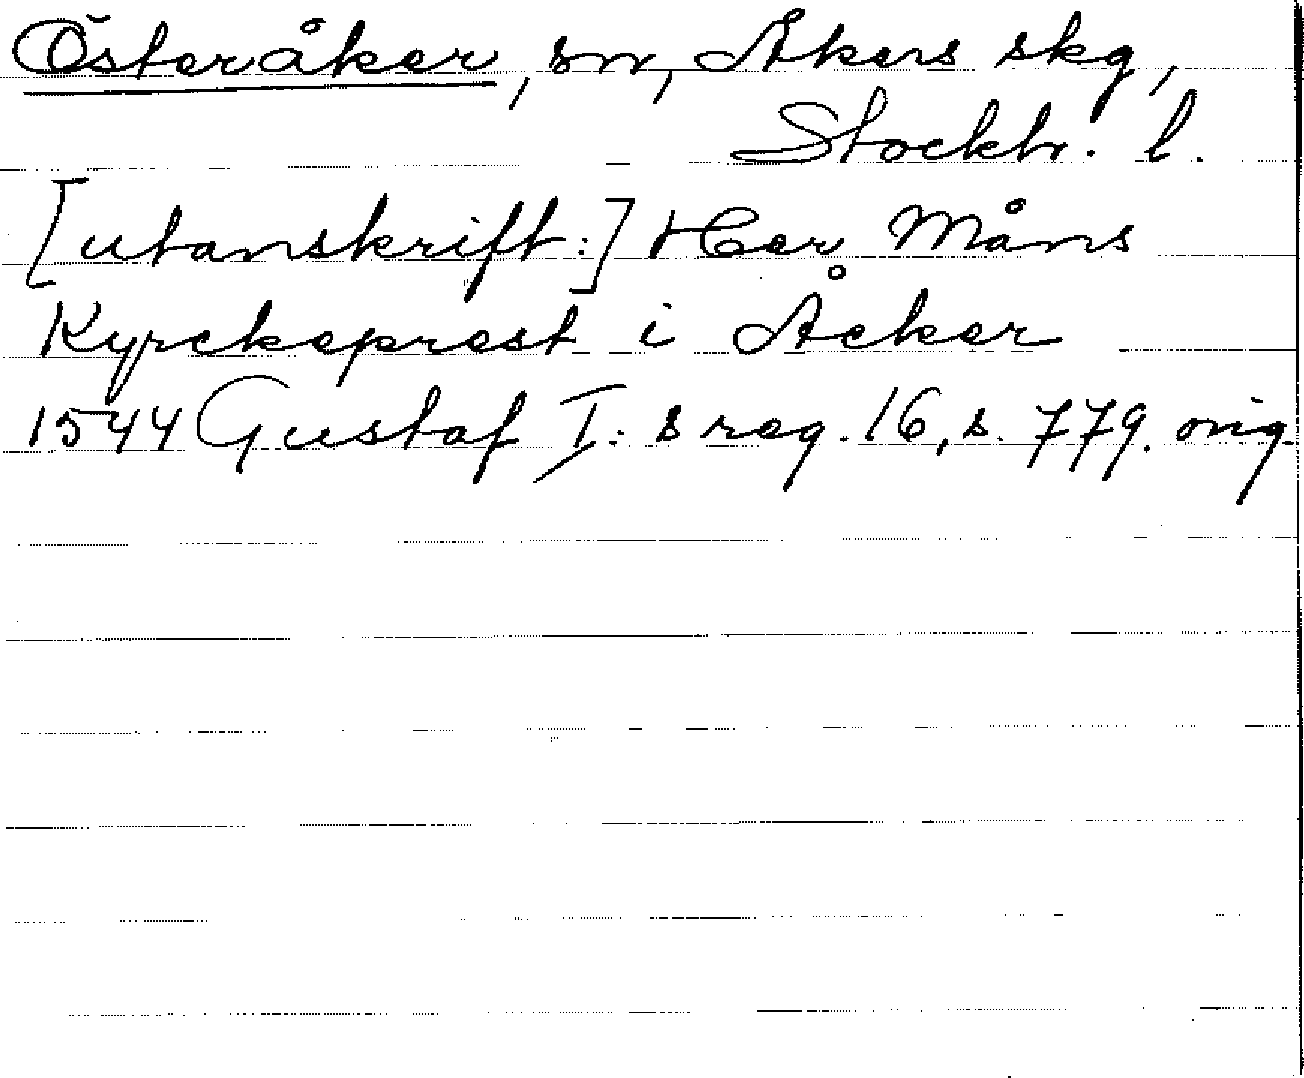 Österåker, sn, Åkers skg,
Stockh. l.
[utanskrift:] Her Måns
Kyrckeprest i Åcker
1544 Gustaf I:s reg. 16, s. 779. orig.